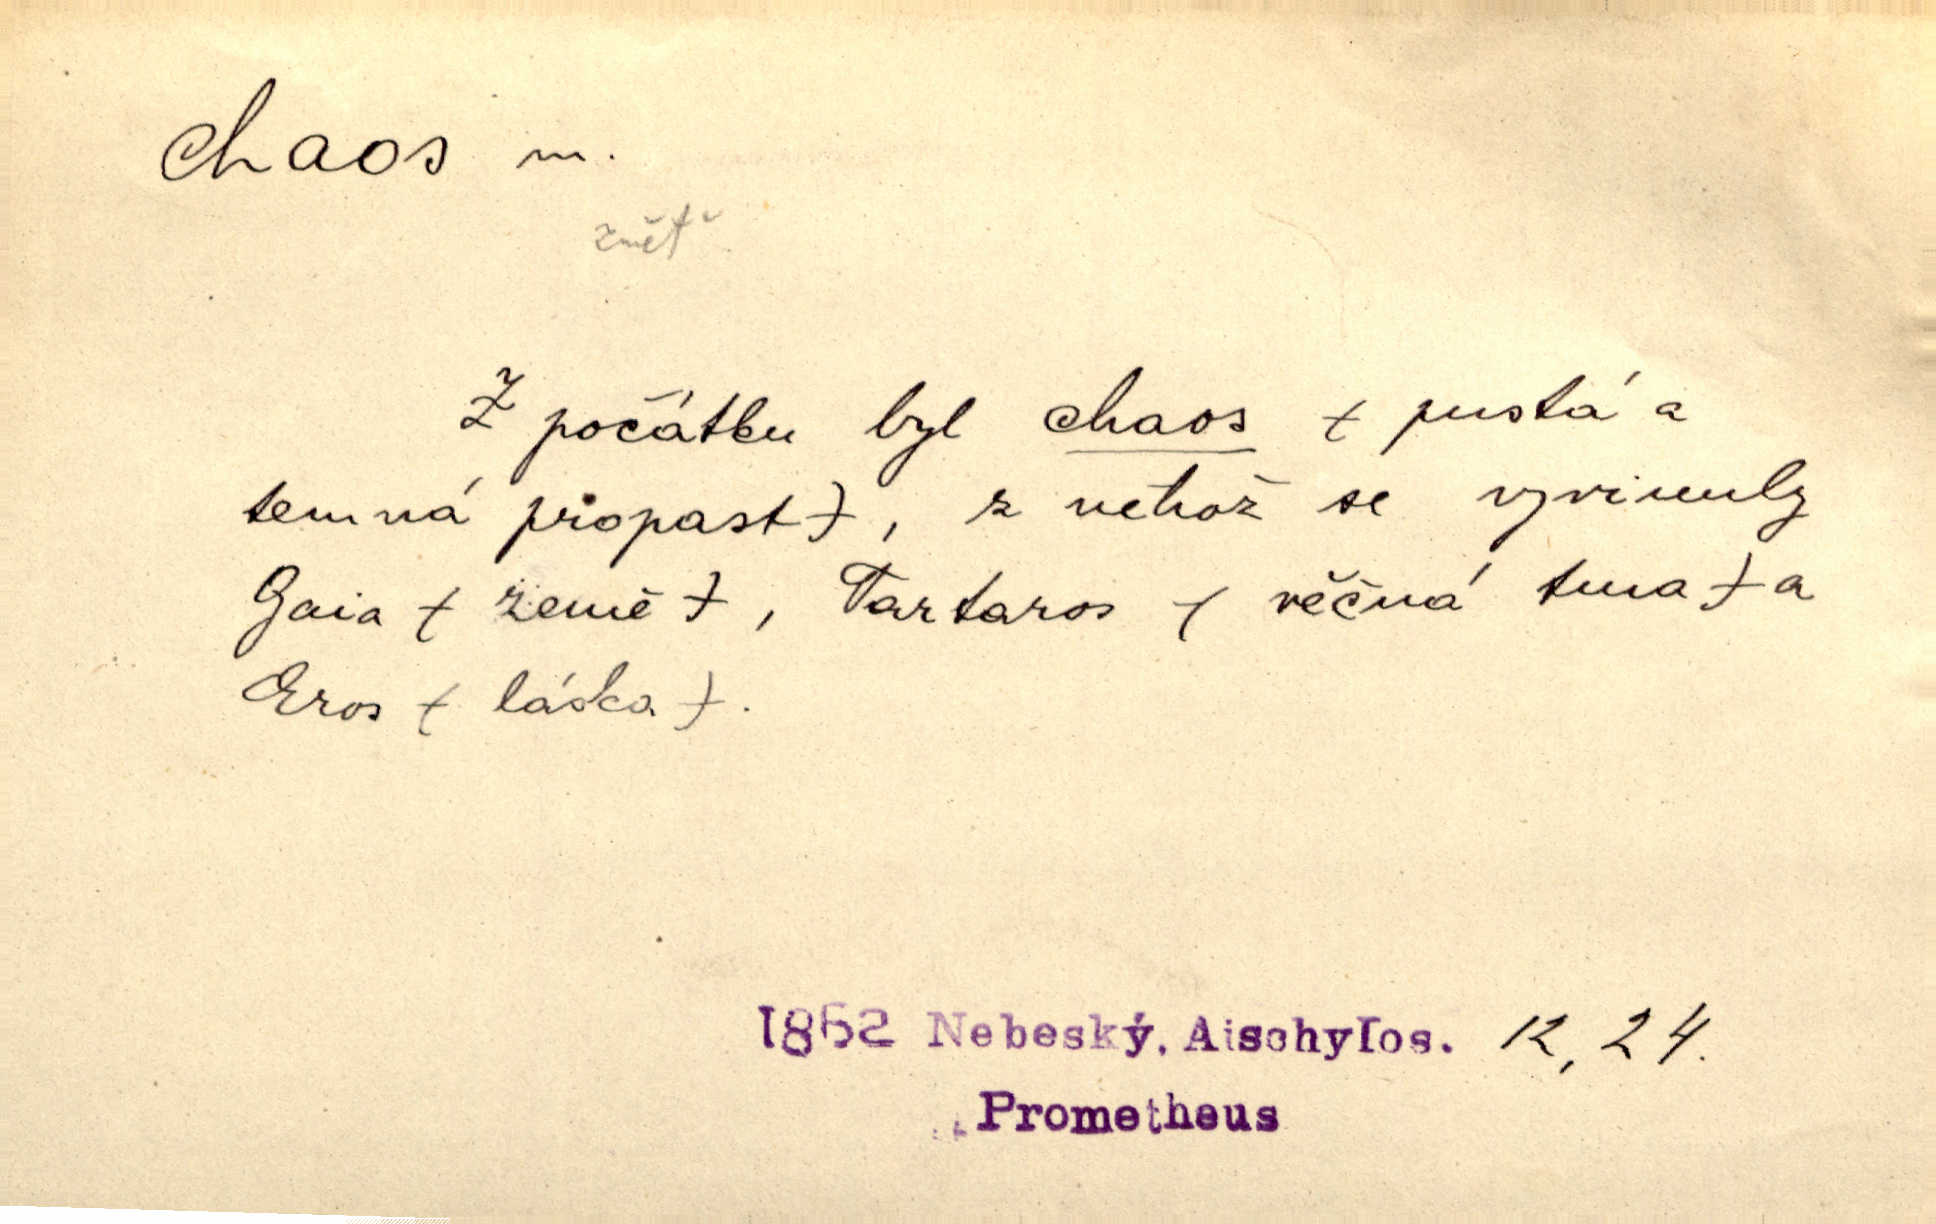 chaos m.
změť
Z počátku byl chaos ( pustá a
temná propast ), z něhož se vyvinuly
Gaia ( země ), Tartaros ( věčná tma ) a
Eros ( láska ).
1862 Nebeský, Aischylos. 12, 24.
Prometheus